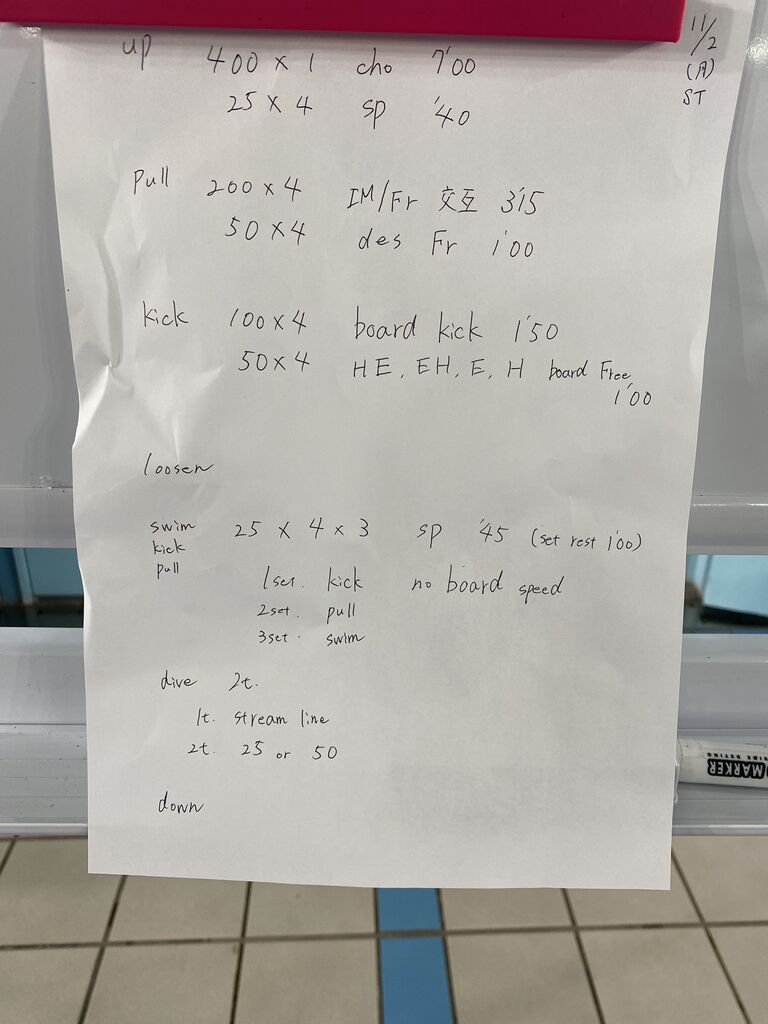 11/2
(月)
ST
up 400 × 1 cho 7'00
25 × 4 sp '40
pull 200 × 4 IM/Fr 交互 3'15
50 × 4 des Fr 1'00
kick 100 × 4 board kick 1'50
50 × 4 HE, EH, E, H board Free
1'00
loosen
swim 25 × 4 × 3 sp '45 (set rest 1'00)
kick
pull
1set. kick no board speed
2set. pull
3set. swim
dive 2t.
1t. stream line
2t. 25 or 50
down
MARKER